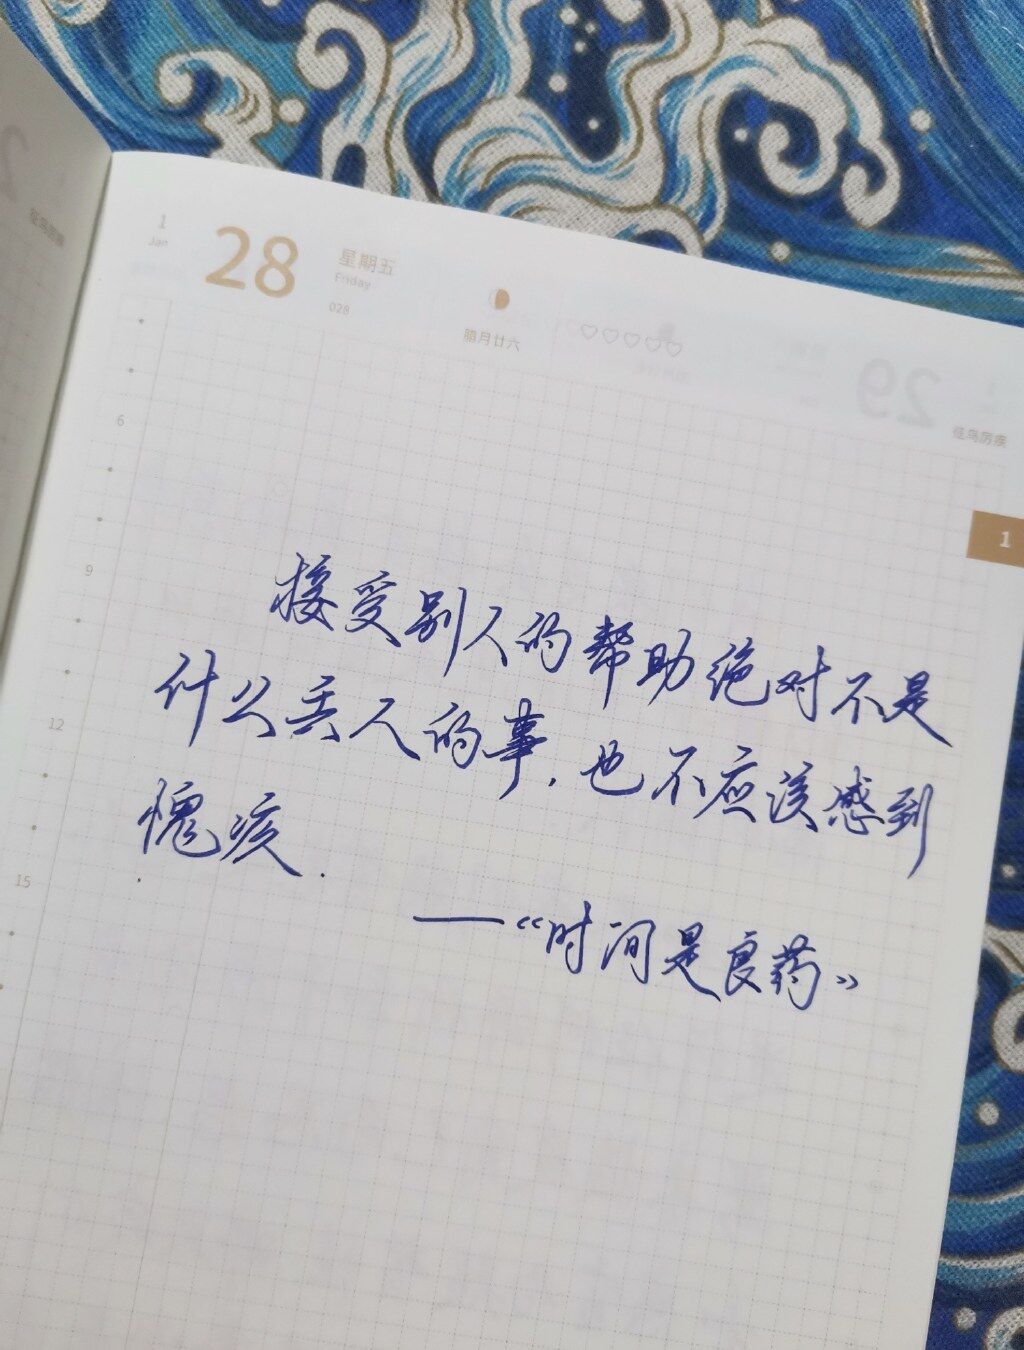 1
Jan
28
星期五
Friday
028
腊月廿六
征鸟厉疾
1
6
9
12
15
接受别人的帮助绝对不是
什么丢人的事.也不应该感到
愧疚.
——《时间是良药》